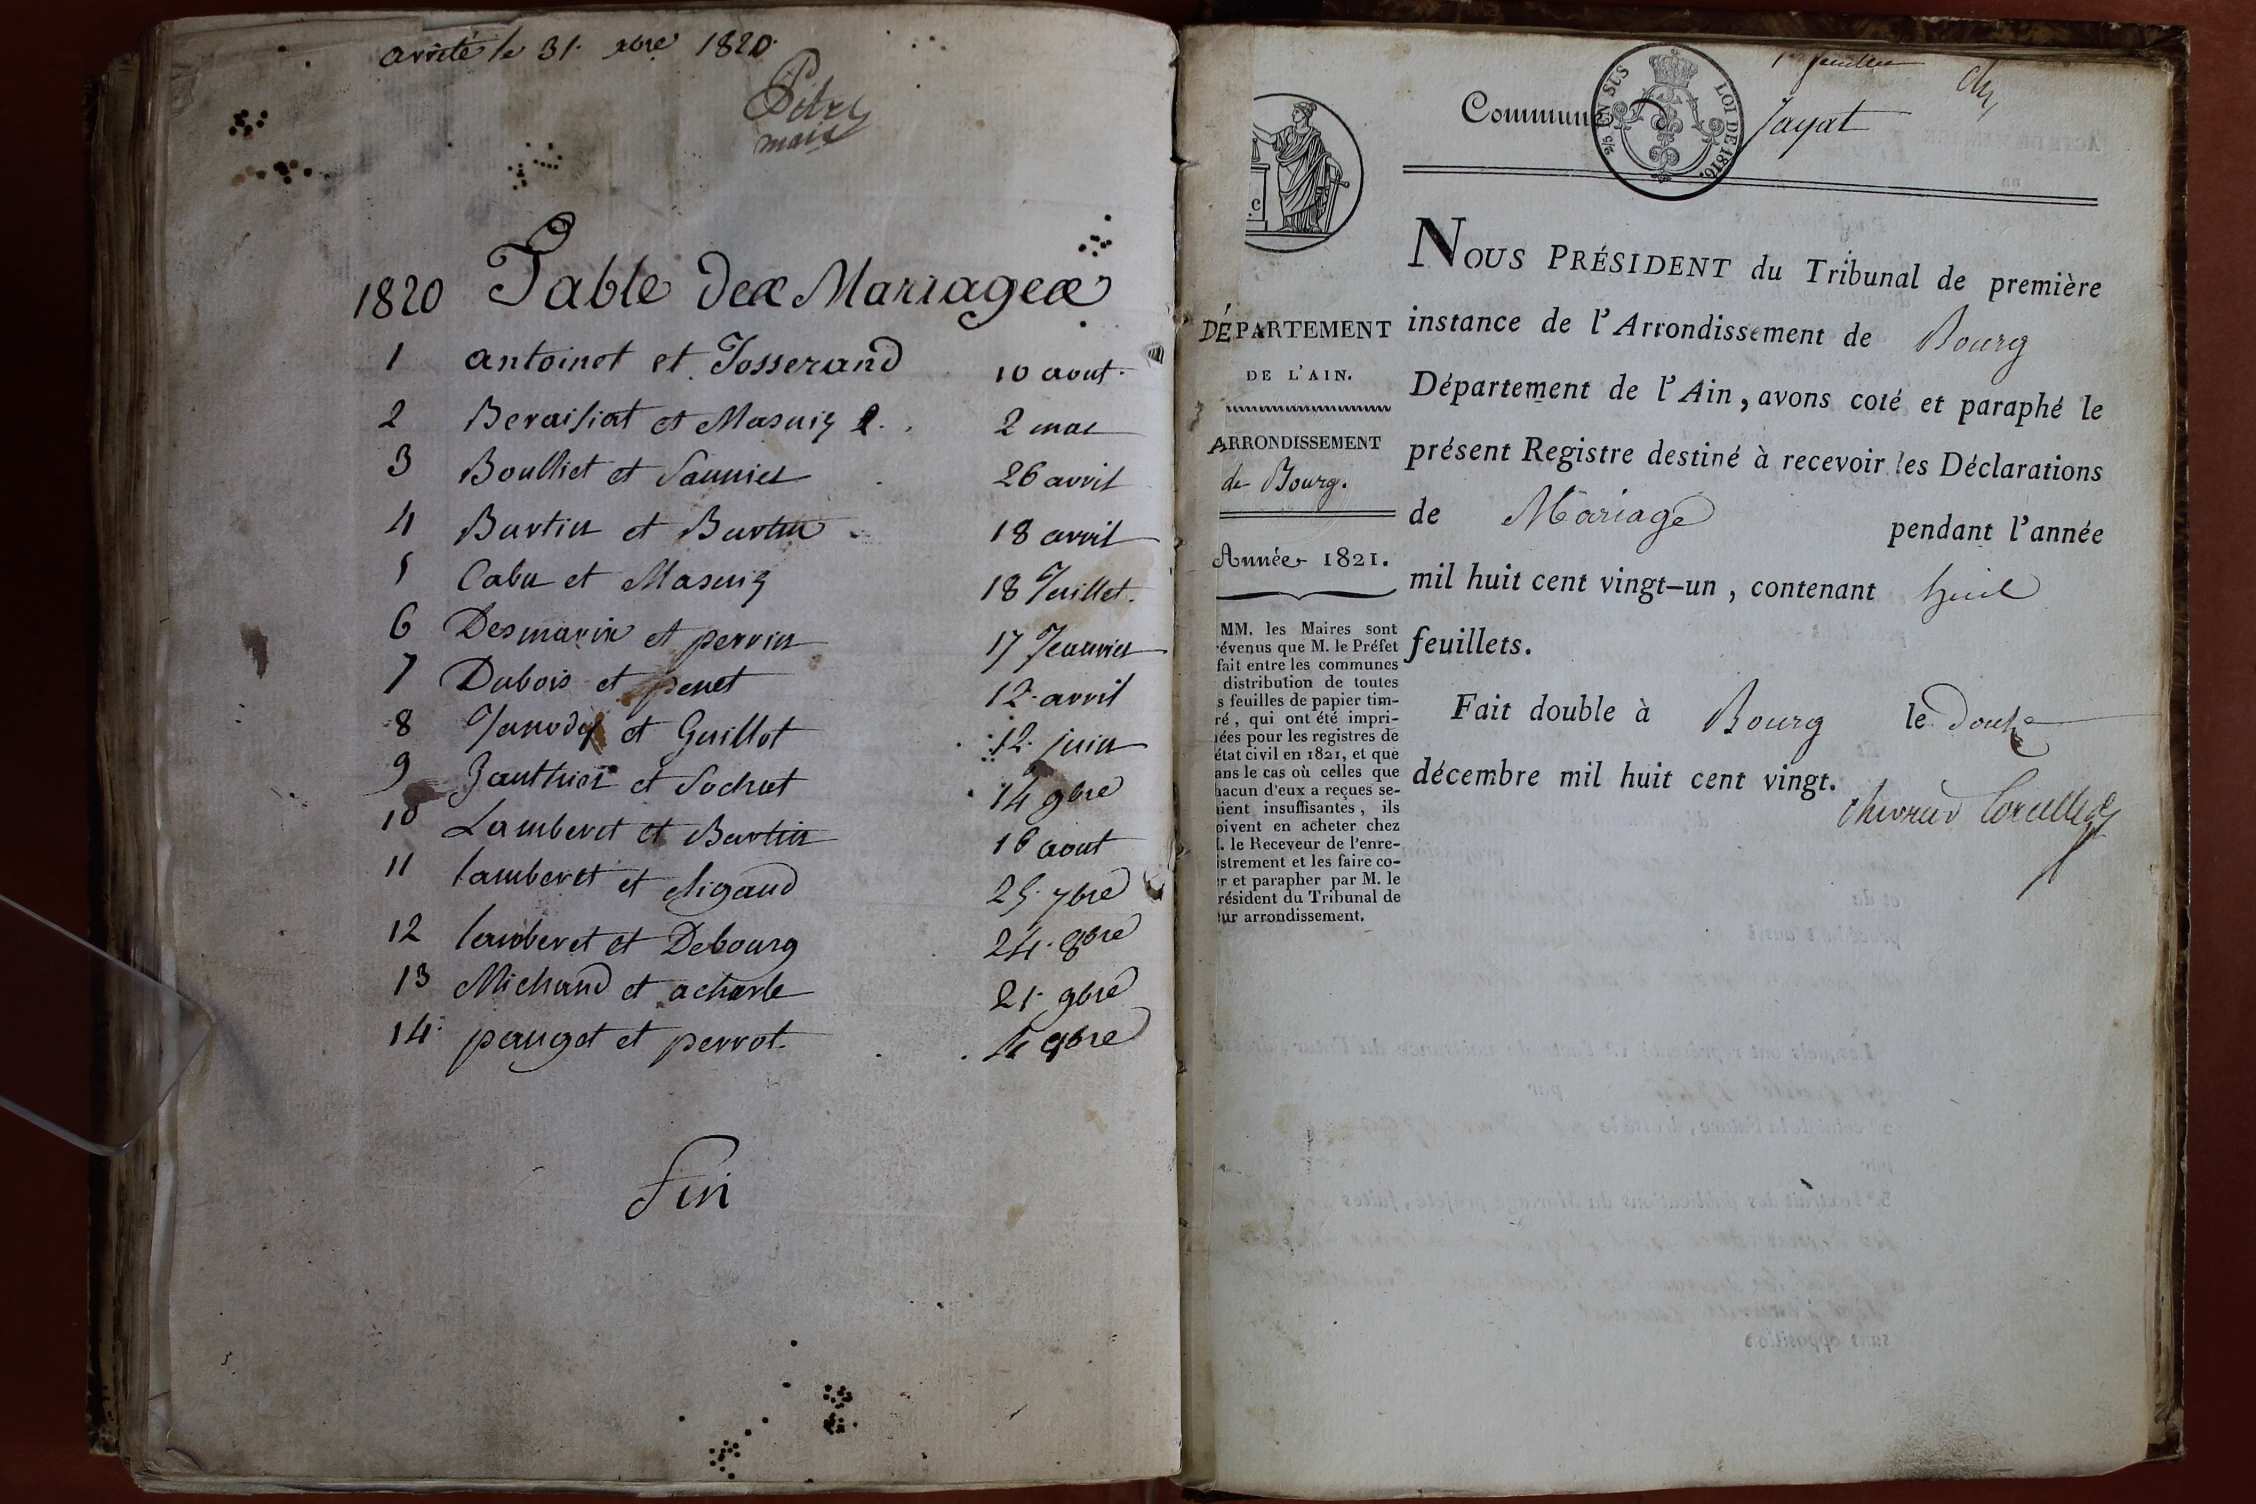 arrêté le 31. xbre 1820.
maire
1820 Table des Mariages
1 antoinet et Josserand 10 aout.
2 Beraisiat et Masuiy 2 mai
3 Boulliet et Saunier 26 avril
4 Burtin et Burtin 18 avril
5 Cabu et Masuiy 18 Juillet.
6 Desmaris et perrin 17 Janvier
7 Dubois et penet 12 avril
8 Janody et Guillot 12 juin
9 Janthier et Sochet 14 9bre
10 Lamberet et Burtin 16 aout
11 lamberet et Rigaud 25. 7bre
12 lamberet et Debourg 24. 8bre
13 Michaud et acharle 21. 9bre
14. pauget et perrot. 9bre
Fin
1er feuillet
EN SUS
LOI DE 1816.
Commune Jayat
DÉPARTEMENT
DE L'AIN.
ARRONDISSEMENT
de Bourg.
Année 1821.
MM. les Maires sont
révenus que M. le Préfet
fait entre les communes
distribution de toutes
s feuilles de papier tim-
ré, qui ont été impri-
ées pour les registres de
état civil en 1821, et que
ans le cas où celles que
hacun d'eux a reçues se-
ient insuffisantes, ils
oivent en acheter chez
. le Receveur de l'enre-
istrement et les faire co-
r et parapher par M. le
résident du Tribunal de
ur arrondissement.
NOUS PRÉSIDENT du Tribunal de première
instance de l'Arrondissement de Bourg
Département de l'Ain, avons coté et paraphé le
présent Registre destiné à recevoir les Déclarations
de Mariage pendant l'année
mil huit cent vingt-un, contenant huit
feuillets.
Fait double à Bourg le douze
décembre mil huit cent vingt.